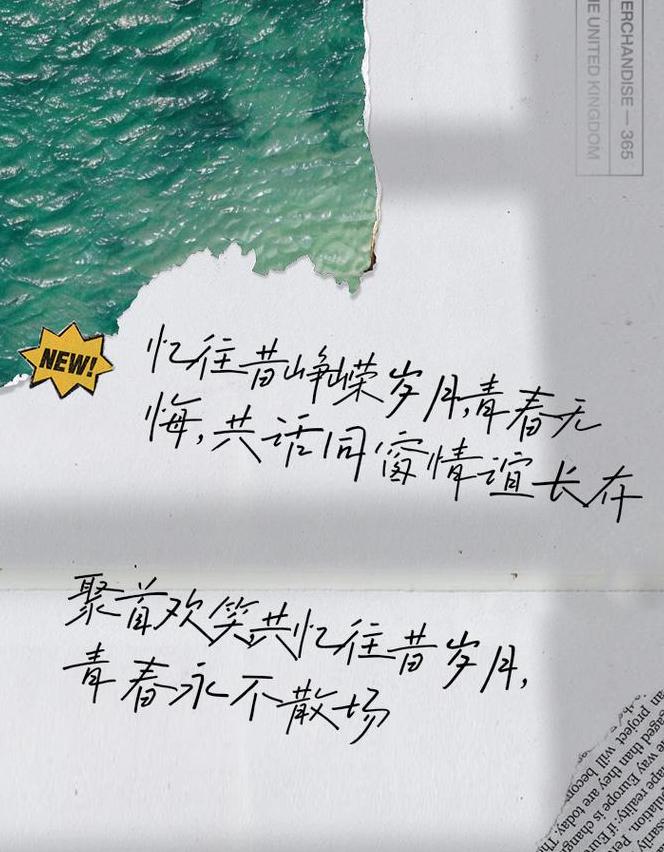 ERCHANDISE — 365
E UNITED KINGDOM
NEW!
忆往昔峥嵘岁月,青春无
悔,共话同窗情谊长存
聚首欢笑共忆往昔岁月,
青春永不散场
project will becom
aged than they are today. Th
e way Europe is chang
ope reality: if Eur